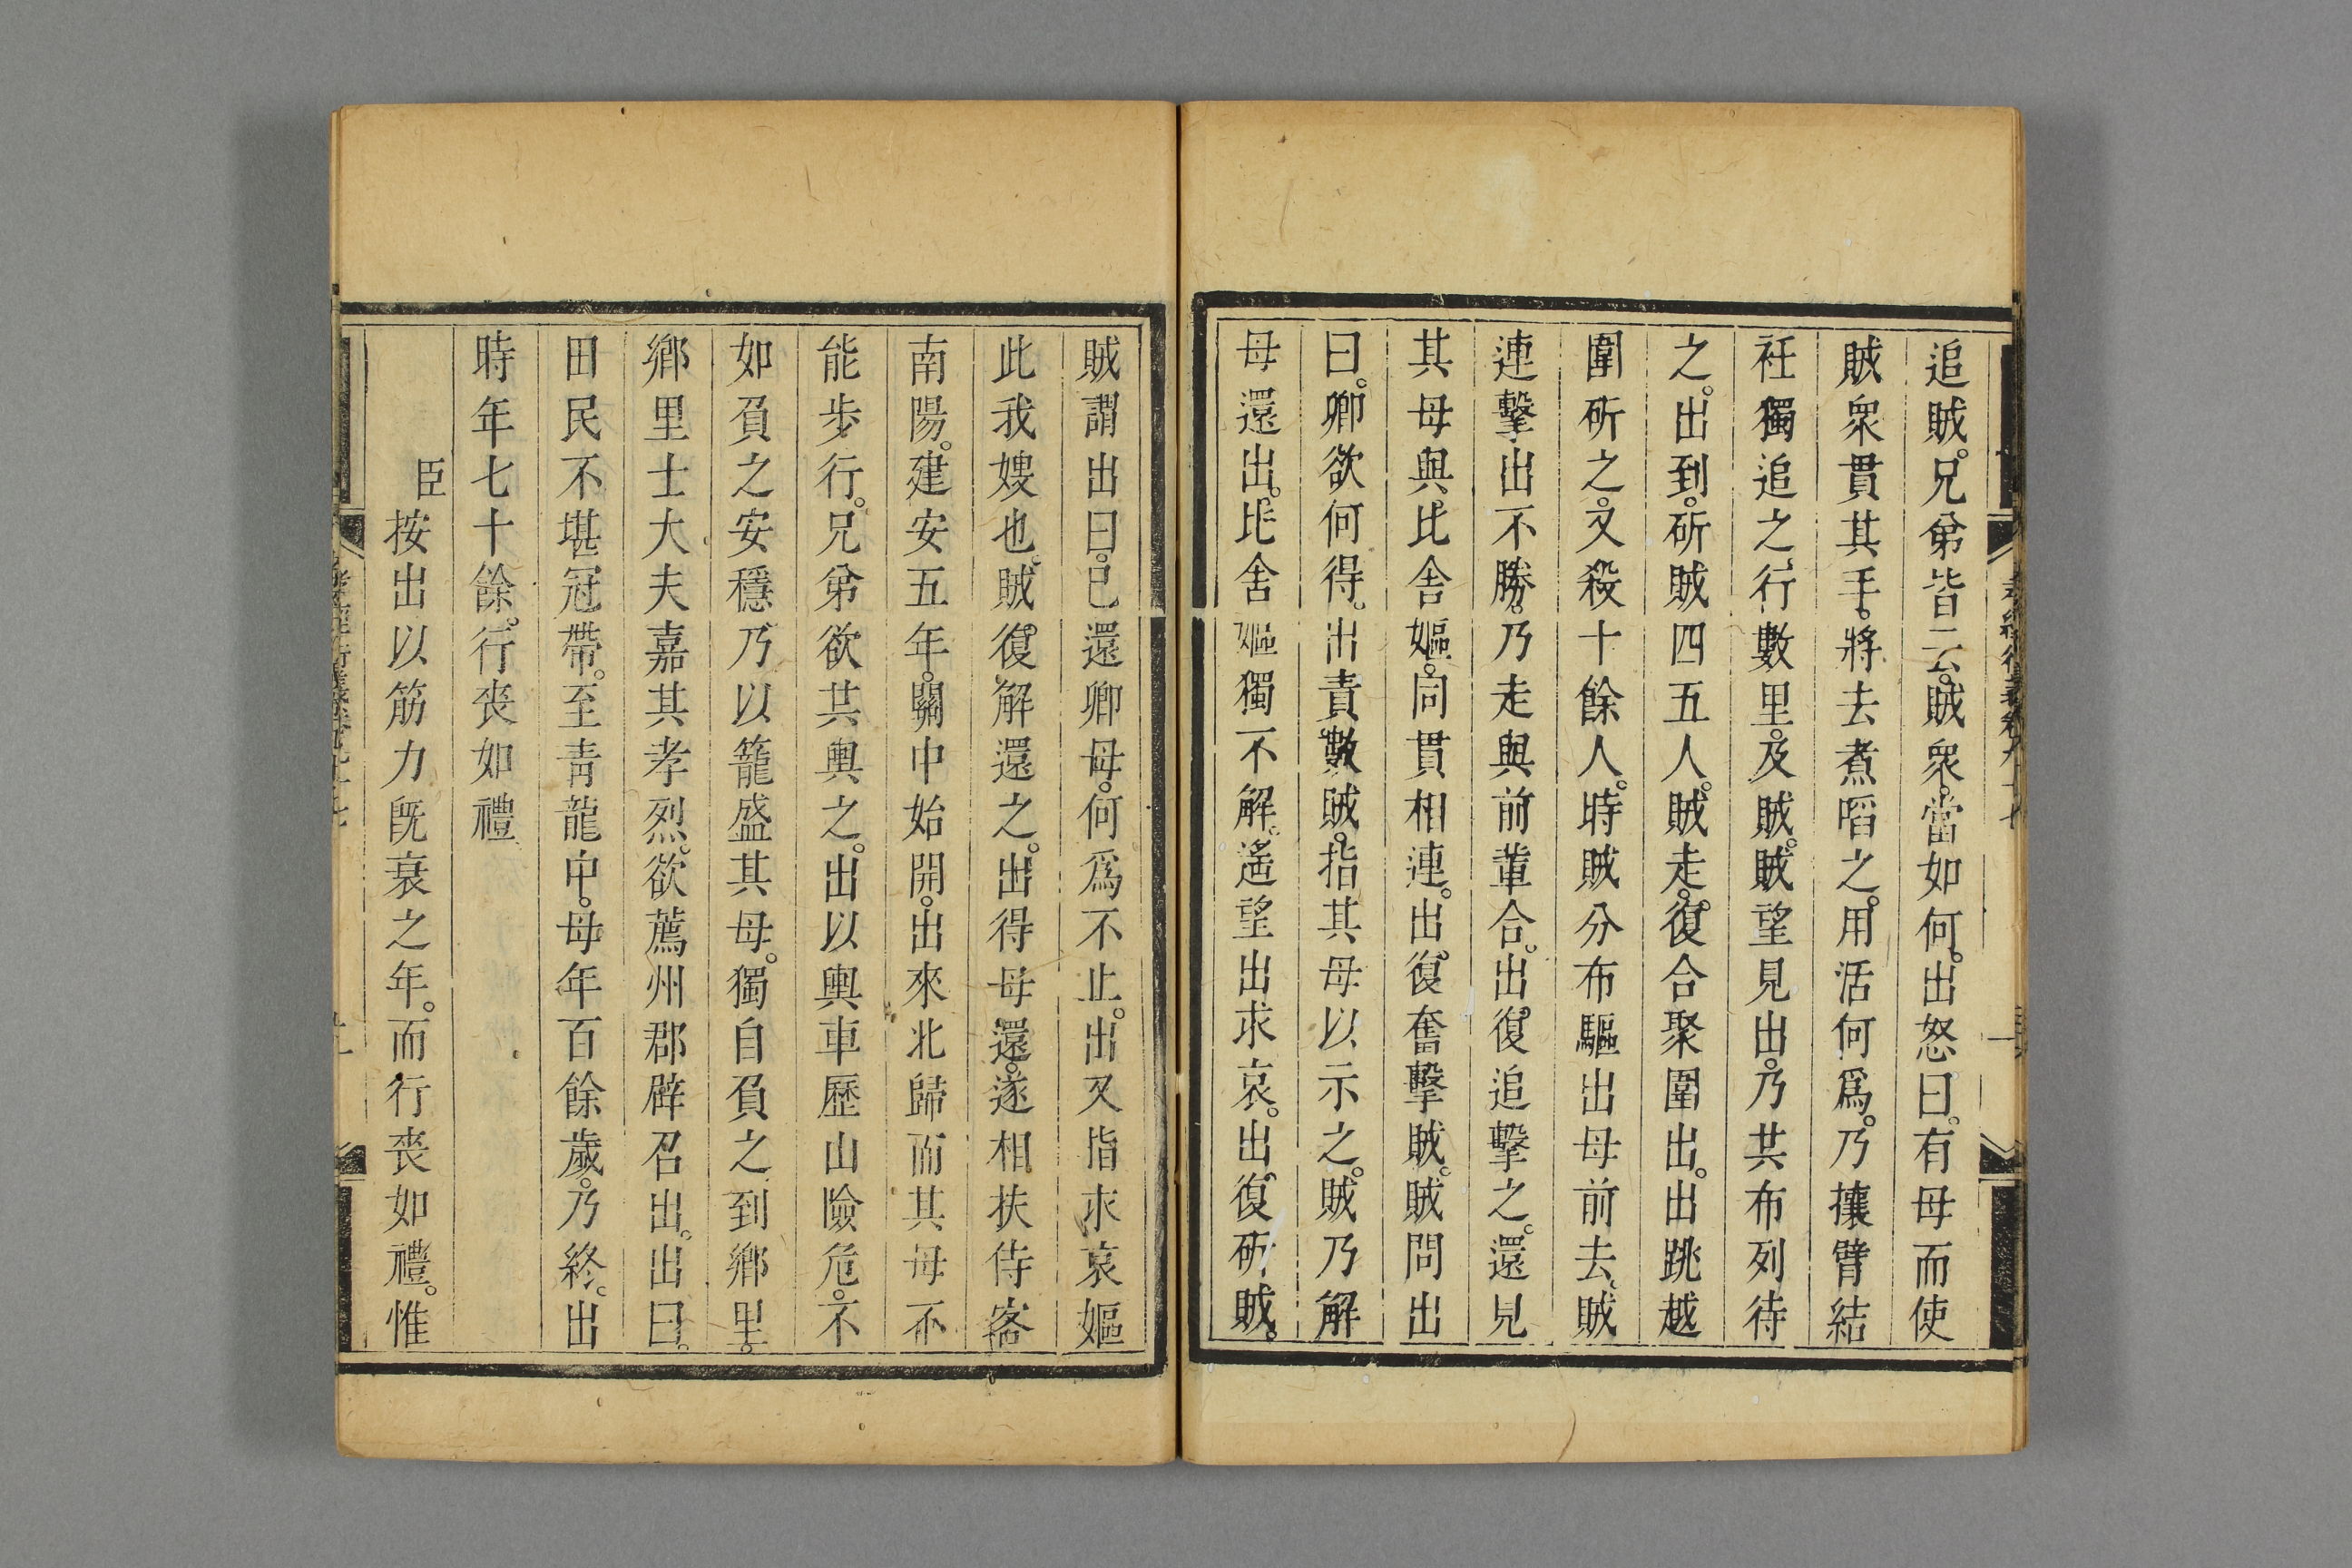 追賊。兄弟皆云。賊衆。當如何。出怒曰。有母而使
賊衆貫其手。將去煮啗之。用活何爲。乃攘臂結
衽獨追之、行數里。及賊。賊望見出。乃共布列待
之。出到。斫賊四五人。賊走。復合聚圍出。出跳越
圍斫之。又殺十餘人。時賊分布驅出母前去。賊
連擊出不勝。乃走與前輩合。出復追擊之。還見
其母與比舍嫗。同貫相連。出復奮擊賊。賊問出
曰。卿欲何得。出責數賊。指其母以示之。賊乃解
母還出。比舍嫗獨不解。遙望出求哀。出復斫賊。
賊謂出曰。已還卿母。何爲不止。出又指求哀嫗
此我嫂也。賊復解還之。出得母還。遂相扶侍客
南陽。建安五年。關中始開。出來北歸而其母不
能步行。兄弟欲共輿之。出以輿車歷山險危。不
如負之安穩。乃以籠盛其母。獨自負之到鄉里。
鄉里士大夫嘉其孝烈。欲薦州郡辟召出。出曰。
田民不堪冠帶。至青龍中。母年百餘歲。乃終。出
時年七十餘。行喪如禮
臣按出以筋力既衰之年。而行喪如禮。惟